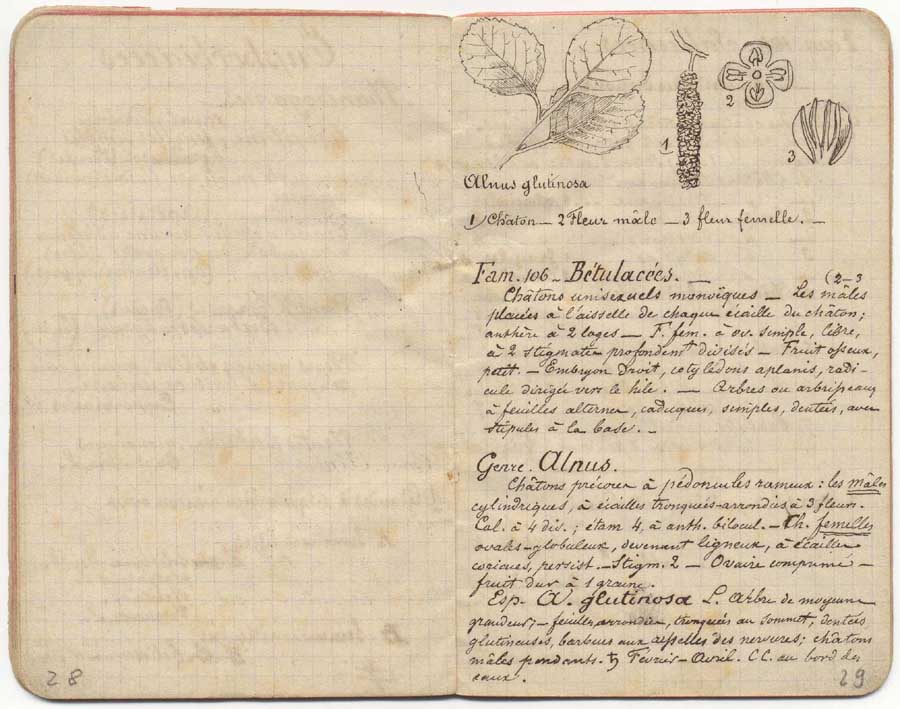 1
2
3
Alnus glutinosa
1 Châton — 2 Fleur mâle — 3 fleur femelle. —
Fam. 106 — Bétulacées. —
(2-3
Châtons unisexuels monoïques — Les mâles
placées à l'aisselle de chaque écaille du châton;
anthère à 2 loges — F. fem. à ov. simple, libre,
à 2 stigmates profondemt divisés — Fruit osseux,
petit. — Embryon droit, cotylédons aplanis, radi-
cule dirigée vers le hile. — Arbres ou arbrisseaux
à feuilles alternes, caduques, simples, dentées, avec
stipules à la base. —
Genre. Alnus.
Châtons précoces à pédoncules rameux: les mâles
cylindriques, à écailles tronquées-arrondies à 3 fleurs.
Cal. à 4 div.; étam 4. à anth. bilocul. — Ch. femelles
ovales-globuleux, devenant ligneux, à écailles
coriaces, persist. — Stigm. 2 — Ovaire comprimé —
fruit dur à 1 graine.
Esp. A. glutinosa L. Arbre de moyenne
grandeur; — feuilles arrondies, tronquées au sommet, dentées
glutineuses, barbues aux aisselles des nervures; châtons
mâles pendants. ♄ Février-Avril. CC. au bord des
eaux.
28
29